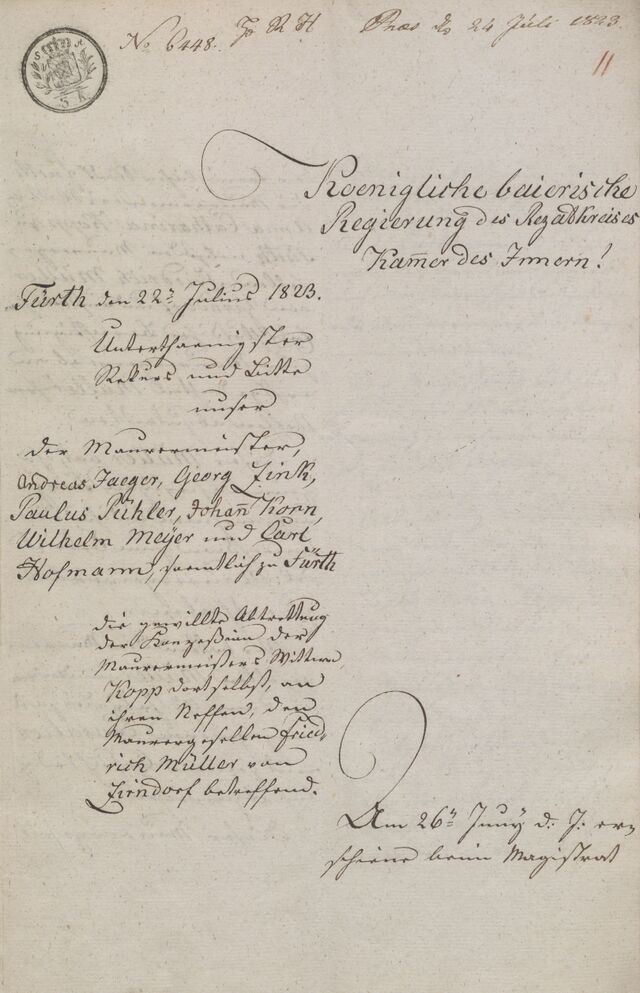 No 6448. R H Præs d 24 Juli 1823.
11
5 K
Koenigliche baierische
Regierung des Rezatkreises
Kam̄er des Innern!
Fürth den 22n Julius 1823.
Unterthaenigster
Rekurs und Bitte
unser
der Maurermeister,
Andreas Jaeger, Georg Zink,
Paulus Pühler, Johan̄ Korn,
Wilhelm Meÿer und Carl
Hofmann, saemtlich zu Fürth
die gewillte Abtrettung
der Konzeßion der
Maurermeisters Wittwe
Kopp dortselbst, an
ihren Neffen, den
Maurergesellen Fried-
rich Müller von
Zirndorf betreffend.
Am 26n Junÿ d. J. er-
schiene beim Magistrat